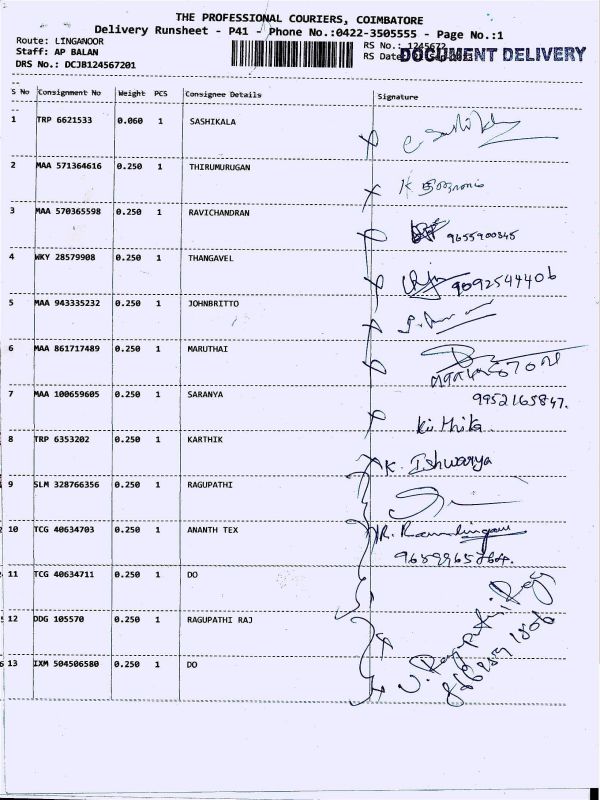 THE PROFESSIONAL COURIERS, COIMBATORE
Delivery Runsheet - P41 - Phone No.:0422-3505555 - Page No.:1
Route: LINGANOOR
RS No.: 1245672
Staff: AP BALAN
RS Date
DOCUMENT DELIVERY
DRS No.: DCJB124567201
S No Consignment No Weight PCS Consignee Details Signature
1 TRP 6621533 0.060 1 SASHIKALA
2 MAA 571364616 0.250 1 THIRUMURUGAN
3 MAA 570365598 0.250 1 RAVICHANDRAN
9655900345
4 WKY 28579908 0.250 1 THANGAVEL
9092544406
5 MAA 943335232 0.250 1 JOHNBRITTO
6 MAA 861717489 0.250 1 MARUTHAI
7 MAA 100659605 0.250 1 SARANYA
9952165847.
8 TRP 6353202 0.250 1 KARTHIK
K. Ishwarya
9 SLM 328766356 0.250 1 RAGUPATHI
10 TCG 40634703 0.250 1 ANANTH TEX
R. Ramalingam
11 TCG 40634711 0.250 1 DO
12 DDG 105570 0.250 1 RAGUPATHI RAJ
V. Ragupathi Raj
13 IXM 504506580 0.250 1 DO